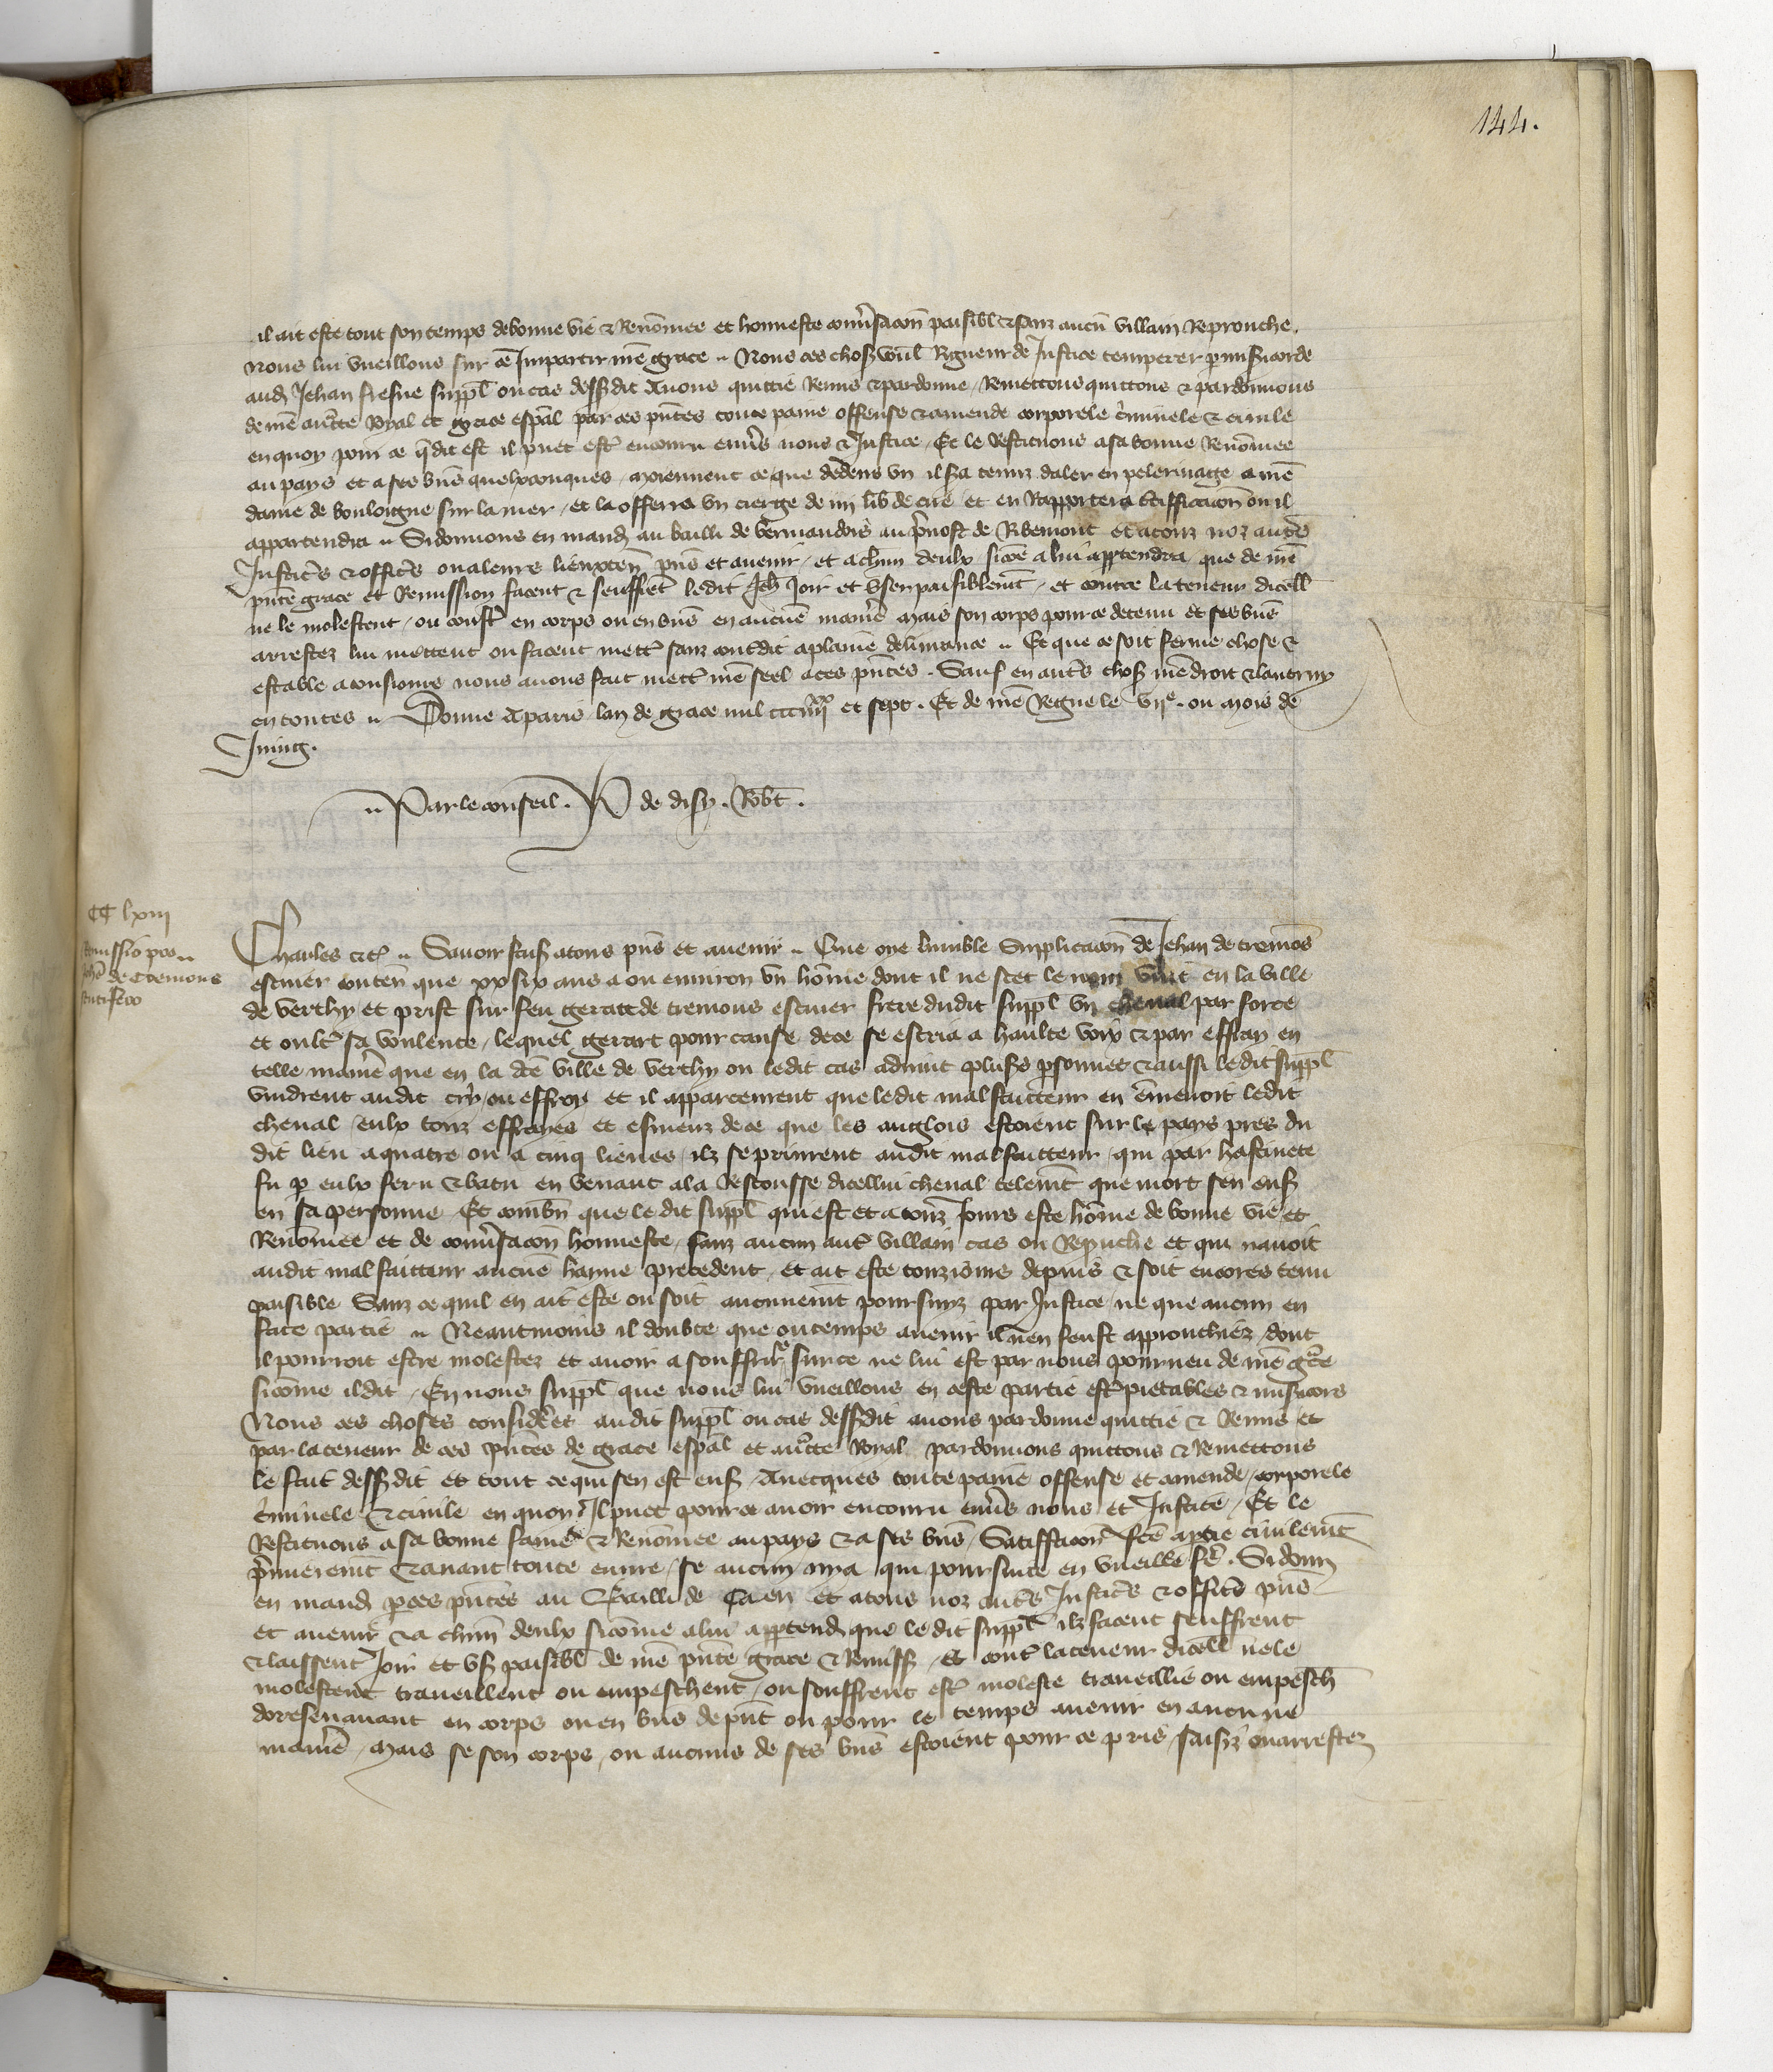 144.
il ait este tout son temps de bonne vie & Renōmee et honneste conūsacōn paisibl & sanz aucū villain Reprouche.
nous lui vueillons sur ce Impartir nrē grace ~ Nous ces chos Rigueur de Justice temperer
aud Jehan fresne suppl ou cas dessdit Avons quittié Remis & pardonne / Remettons quittons & pardonnons
de nrē auctte Royal et grace espāl par ces pñtes toute paine offense & amende corporele criminele & civile
en quoy pour ce q̄ dit est il puet estr encouru envers nous & Justice / Et le Restituons a sa bonne Renōmee
au pays et a ses biens quelxconques / moiennent ce que dedens un il sera tenuz daler en pelerinage a nrē
dame de bouloigne sur la mer / et la offerra un cierge de iiij lib de cire / et en Rapportera ou il
appartendra ~ Si donnons en mand au bailli de vermandois au prevost de Ribemont et a touz noz autres
Justiciers & officiers ou a leurs lieuxten pñs et avenir / et a chūn deulx sicōe a lui appartendra que de nrē
pñte grace et Remission facent & seuffrēt ledit Jeh Joir et user paisiblemt / et contre la teneur dicell
ne le molestent / ou contr en corps ou en biens en aucune maniere mais son corps pour ce detenu et ses biens
arrestez lui mettent ou facent mettr sanz contredit a plaine delivrance ~ Et que ce soit ferme chose &
estable a tousiours nous avons fait mettr nrē seel a ces pñtes . Sauf en autrs chos nrē droit & lautruy
en toutes ~ Donne A paris lan de grace mil CCC iiijxx et sept . Et de nrē Regne le vije . ou mois de
Juing .
~ Par le conseil . P de disy . Robt .
CC lxiij
Remissio pro
Jehē de Tremons
scutifero
Charles etc ~ Savoir fais a tous pñs et avenir ~ Que oye lumble Supplicacōn de Jehan de tremōs
escuier conten que xxsix ans a ou environ un hōme dont il ne scet le nom vint en la ville
de verthy et prist sur feu gerart de tremons escuier frere dudit suppl un cheval par force
et oultr sa voulente / lequel gerart pour cause de ce se escria a haulte voix & par effray en
telle maniēe que en la dcē ville de verthy ou ledit cas advint plusrs personnes & aussi ledit suppl
vindrent audit cry ou effroy et il apparceurent que ledit malfaitteur en ēmenoit ledit
cheval / eulx touz effrayes et esmeuz de ce que les anglois estoient sur le pays pres du
dit lieu a quatre ou a cinq lieues / ilz se prinrent audit malfaitteur / qui par hastivete
fu p eulx feru & batu en venant a la Rescousse dicellui cheval telemt que mort sen ens
en sa personne / Et combn que ledit suppl qui est et a touz Jours este hōme de bonne vie et
Renōmee et de conūsacōn honneste / sanz aucun autr villain cas ou Reprouche et qui navoit
audit malfaitteur aucune hayne precedent / et ait este touziours depuis & soit encores tenu
paisible Sanz ce quil en ait este ou soit aucunemt poursuiz par Justice / ne que aucun en
face partie ~ Neantmoins il doubte que ou temps avenir il nen feust approuchiez / dont
il pourroit estre molestez et avoir a souffrir se sur ce ne lui est par nous pourveu de nrē grce
sicōme il dit / En nous suppl que nous lui vueillons en ceste partie estr pietables & misicors
Nous ces choses considerees audit suppl ou cas dessdit avons pardonne quittié & Remis et
par la teneur de ces pñtes de grace espāl et auctte Royal pardonnons quittons & Remettons
le fait dessdit et tout ce qui sen est ens / Avecques toute paine offense et amende / corporele
criminele & civile en quoy Il puet pour ce avoir encouru envers nous et Justice / Et le
Restituons a sa bonne fame & Renōmee au pays & a ses biens / Satisffacōn fcē a ptie civilemt
primeremt & avant toute euvre / se aucun ny a qui poursuite en vueille fe . Si donn
en mand p ces pñtes au Bailli de Caen et a tous noz autrs Justicrs & officrs pñs
et avenir & a chūn deulx sicōme a lui appartend que ledit suppl ilz facent seuffrent
& laissent Joir et us paisibl de nrē pñte grace & Remiss / et contr la teneur dicell ne le
molestent traveillent ou empeschent / ou souffrent estr moleste traveillie ou empesch
doresenavant en corps ou en biens de pñt ou pour le temps avenir en aucune
maniēe / mais se son corps / ou aucuns de ses biens estoient pour ce pris saisiz ou arrestez